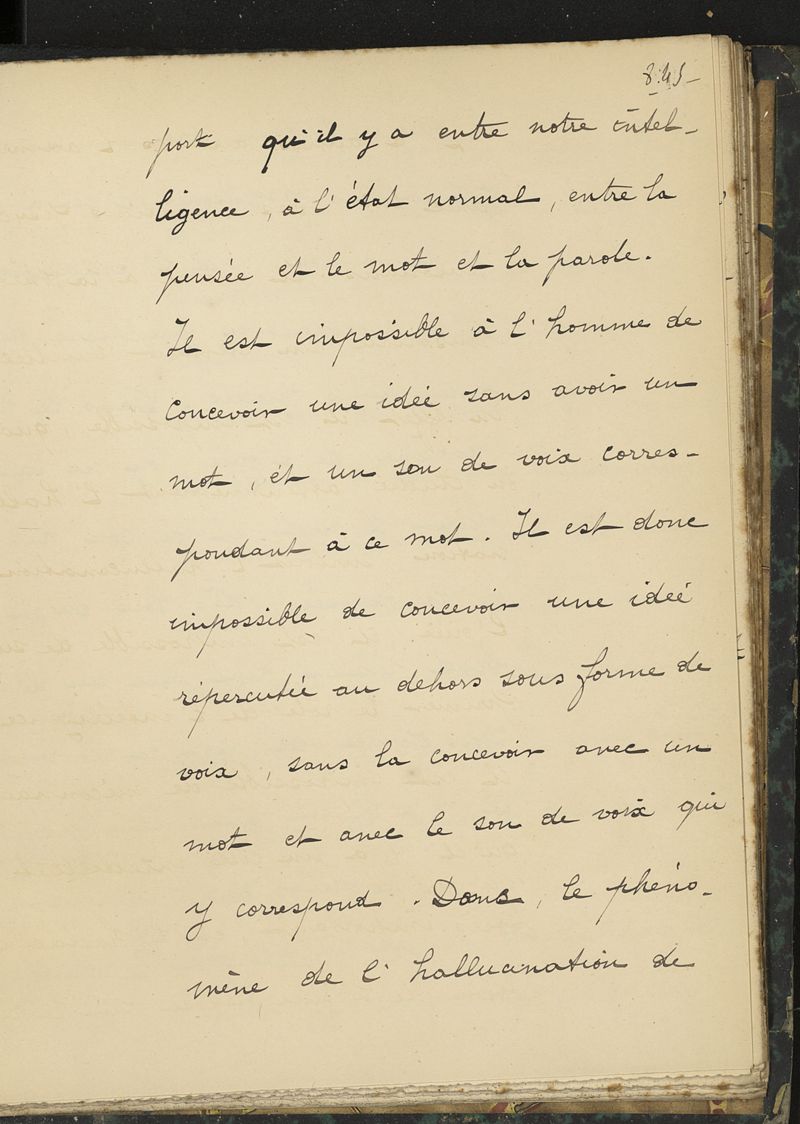 845
port qu'il y a entre notre intel-
ligence, à l'état normal, entre la
pensée et le mot et la parole.
Il est impossible à l'homme de
concevoir une idée sans avoir un
mot, et un son de voix corres-
pondant à ce mot. Il est donc
impossible de concevoir une idée
répercutée au dehors sous forme de
voix, sans la concevoir avec un
mot et avec le son de voix qui
y correspond. Donc, le phéno-
mène de l'hallucination de